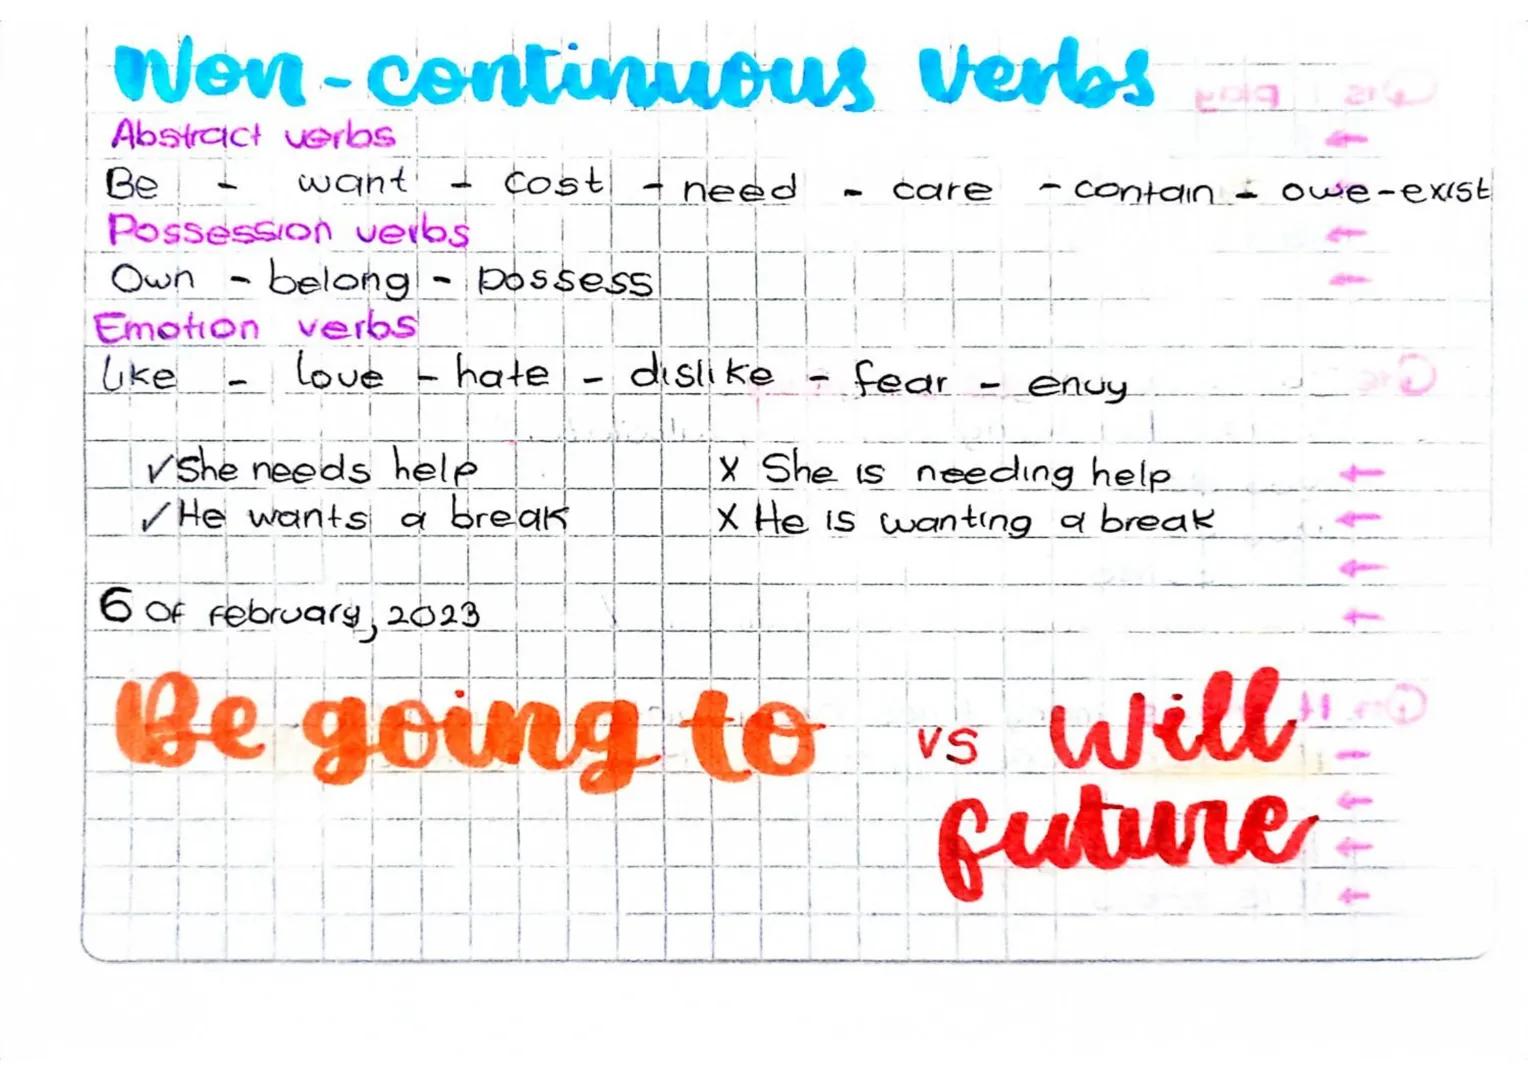 Non-continuous verbs
Abstract verbs
Be - want - cost - need - care - contain - owe-exist
Possession verbs
Own - belong - possess
Emotion verbs
Like - love - hate - dislike - fear - envy
✓She needs help X She is needing help
✓He wants a break X He is wanting a break
6 of february, 2023
Be going to vs will
future